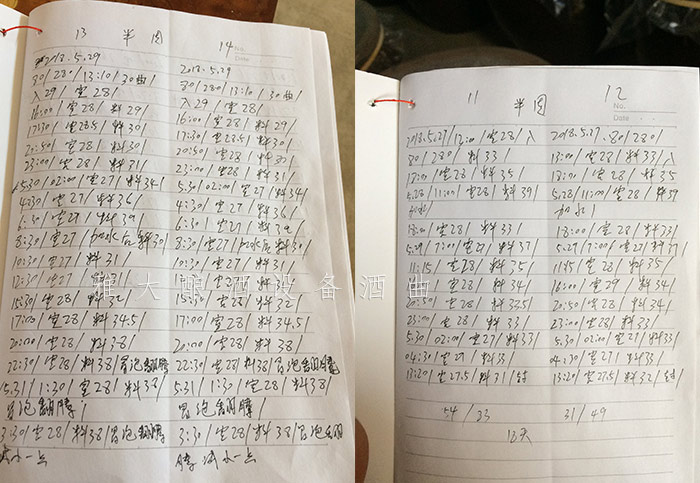 13 半周 14
No.
Date
2018.5.29
30/28°/13:10/30曲/
入29/室28/
16:00/室28/料29/
17:30/室28.5/料30/
20:50/室28/料30/
23:00/室28/料31/
5.30/02:00/室27/料34/
4:30/室27/料36/
6:30/室27/料39/
8:30/室27/加水后料30/
10:30/室27/料31/
12:30/室27/料31/
15:30/室28/料32/
17:00/室28/料34.5/
20:00/室28/料38/
22:30/室28/料38/冒泡翻腾
5.31/1:30/室28/料38/
冒泡翻腾/
3:30/室28/料38/冒泡翻腾
减小一点
2018.5.29
30/28°/13:10/30曲/
入29/室28/
16:00/室28/料29/
17:30/室28.5/料30/
20:50/室28/料30/
23:00/室28/料31/
5.30/02:00/室27/料34/
4:30/室27/料36/
6:30/室27/料39/
8:30/室27/加水后料30/
10:30/室27/料31/
室27/料31/
15:30/室28/料32/
17:00/室28/料34.5/
20:00/室28/料38/
22:30/室28/料38/冒泡翻腾
5.31/1:30/室28/料38/
冒泡翻腾/
3:30/室28/料38/冒泡翻
腾减小一点
11 半周 12
No.
Date
2018.5.27/12:00/室28/入
30/28°/料33/
18:00/室28/料35/
5.28/11:00/室28/料39/
加水/
18:00/室28/料33/
5.29/7:00/室27/料37/
11:15/室28/料35/
料34/
20:50/室28/料33.5/
23:00/室28/料33/
5.30/02:00/室27/料33/
04:30/室27/料33/
13:20/室27.5/料31/封
54/33
2018.5.27.30/28°/
13:00/室28/料33/入
18:00/室28/料35/
5.28/11:00/室28/料39
加水/
18:00/室28/料33/
5.29/7:00/室27/料37/
11:15/室28/料35/
16:00/室29/料34/
20:50/室28/料34/
23:00/室28/料33/
5.30/02:00/室27/料33/
04:30/室27/料33/
13:20/室27.5/料32/封/
31/49
12天
雅大酿酒设备酒曲